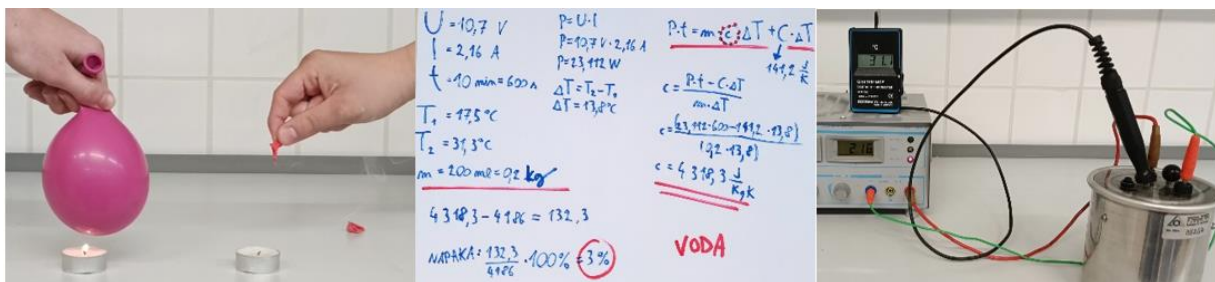 U = 10,7 V
I = 2,16 A
t = 10 min = 600 s
T₁ = 17,5°C
T₂ = 31,3°C
m = 200 ml = 0,2 kg
4318,3 - 4186 = 132,3
NAPAKA: 132,3/4186 · 100% = 3%
P = U·I
P = 10,7 V · 2,16 A
P = 23,112 W
ΔT = T₂ - T₁
ΔT = 13,8°C
P·t = m·c·ΔT + C·ΔT
141,2 J/K
c = (P·t - C·ΔT)/(m·ΔT)
c = (23,112·600 - 141,2·13,8)/(0,2·13,8)
c = 4318,3 J/kgK
VODA
°C
31.1
216